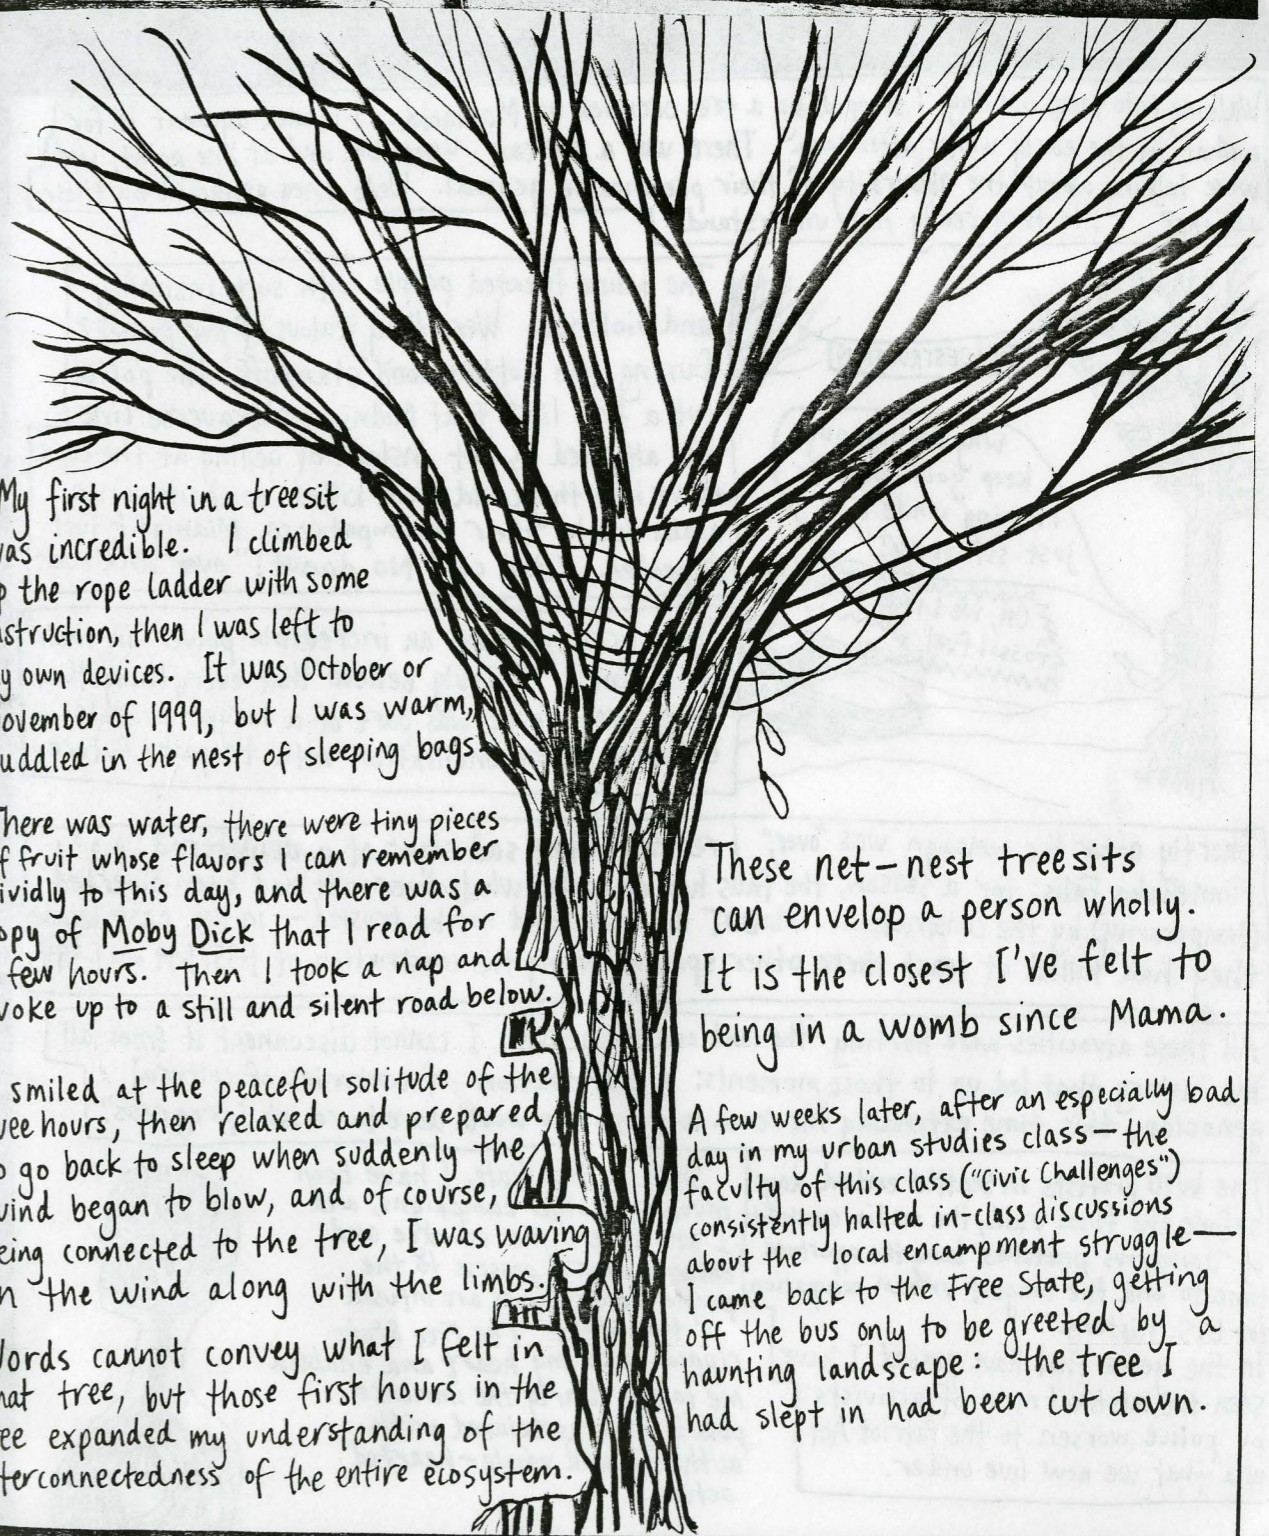 My first night in a treesit
was incredible. I climbed
p the rope ladder with some
struction, then I was left to
y own devices. It was October or
ovember of 1999, but I was warm,
uddled in the nest of sleeping bags.
here was water, there were tiny pieces
f fruit whose flavors I can remember
ividly to this day, and there was a
opy of Moby Dick that I read for
few hours. Then I took a nap and
woke up to a still and silent road below.
smiled at the peaceful solitude of the
wee hours, then relaxed and prepared
o go back to sleep when suddenly the
wind began to blow, and of course,
eing connected to the tree, I was waving
n the wind along with the limbs.
Words cannot convey what I felt in
hat tree, but those first hours in the
ee expanded my understanding of the
terconnectedness of the entire ecosystem.
These net-nest treesits
can envelop a person wholly.
It is the closest I've felt to
being in a womb since Mama.
A few weeks later, after an especially bad
day in my urban studies class—the
faculty of this class ("Civic Challenges")
consistently halted in-class discussions
about the local encampment struggle—
I came back to the Free State, getting
off the bus only to be greeted by a
haunting landscape: the tree I
had slept in had been cut down.